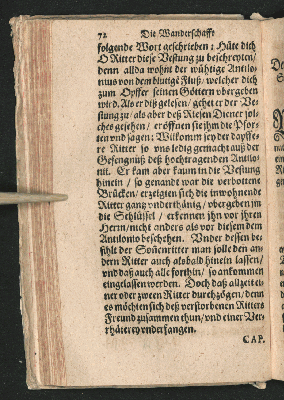 72 Die Wanderschafft
folgende Wort geschrieben: Hüte dich
O Ritter diese Vestung zu beschreyten/
denn allda wohnt der wühtige Antilo-
nius von dem blutige Fluß/ welcher dich
zum Opffer seinen Göttern vbergeben
wird. Als er diß gelesen/ gehet er der Ve-
stung zu/ als aber deß Riesen Diener sol-
ches gesehen/ eröffnen sie jhm die Pfor-
ten vnd sagen: Wilkomm sey der dapffe-
re Ritter so vns ledig gemacht auß der
Gefengnuß deß hochtragenden Antilo-
nii. Er kam aber kaum in die Vestung
hinein/ so genandt war die verbottene
Brücken/ erzeigten sich die inwohnende
Ritter gantz vnderthänig/ vbergeben jm
die Schlüssel/ erkennen jhn vor jhren
Herrn/ nicht anders als vor diesem dem
Antilonio beschehen. Vnder dessen be-
fihlt der Soñenritter man solle den an-
dern Ritter auch alsbald hinein lassen/
vnd daß auch alle forthin/ so ankommen
eingelassen werden. Doch daß allzeit ei-
ner oder zween Ritter durchzögen/ denn
es möchten sich deß verstorbenen Ritters
Freund zusammen thun/ vnd einer Ver-
rhäterey vnderfangen.
CAP.